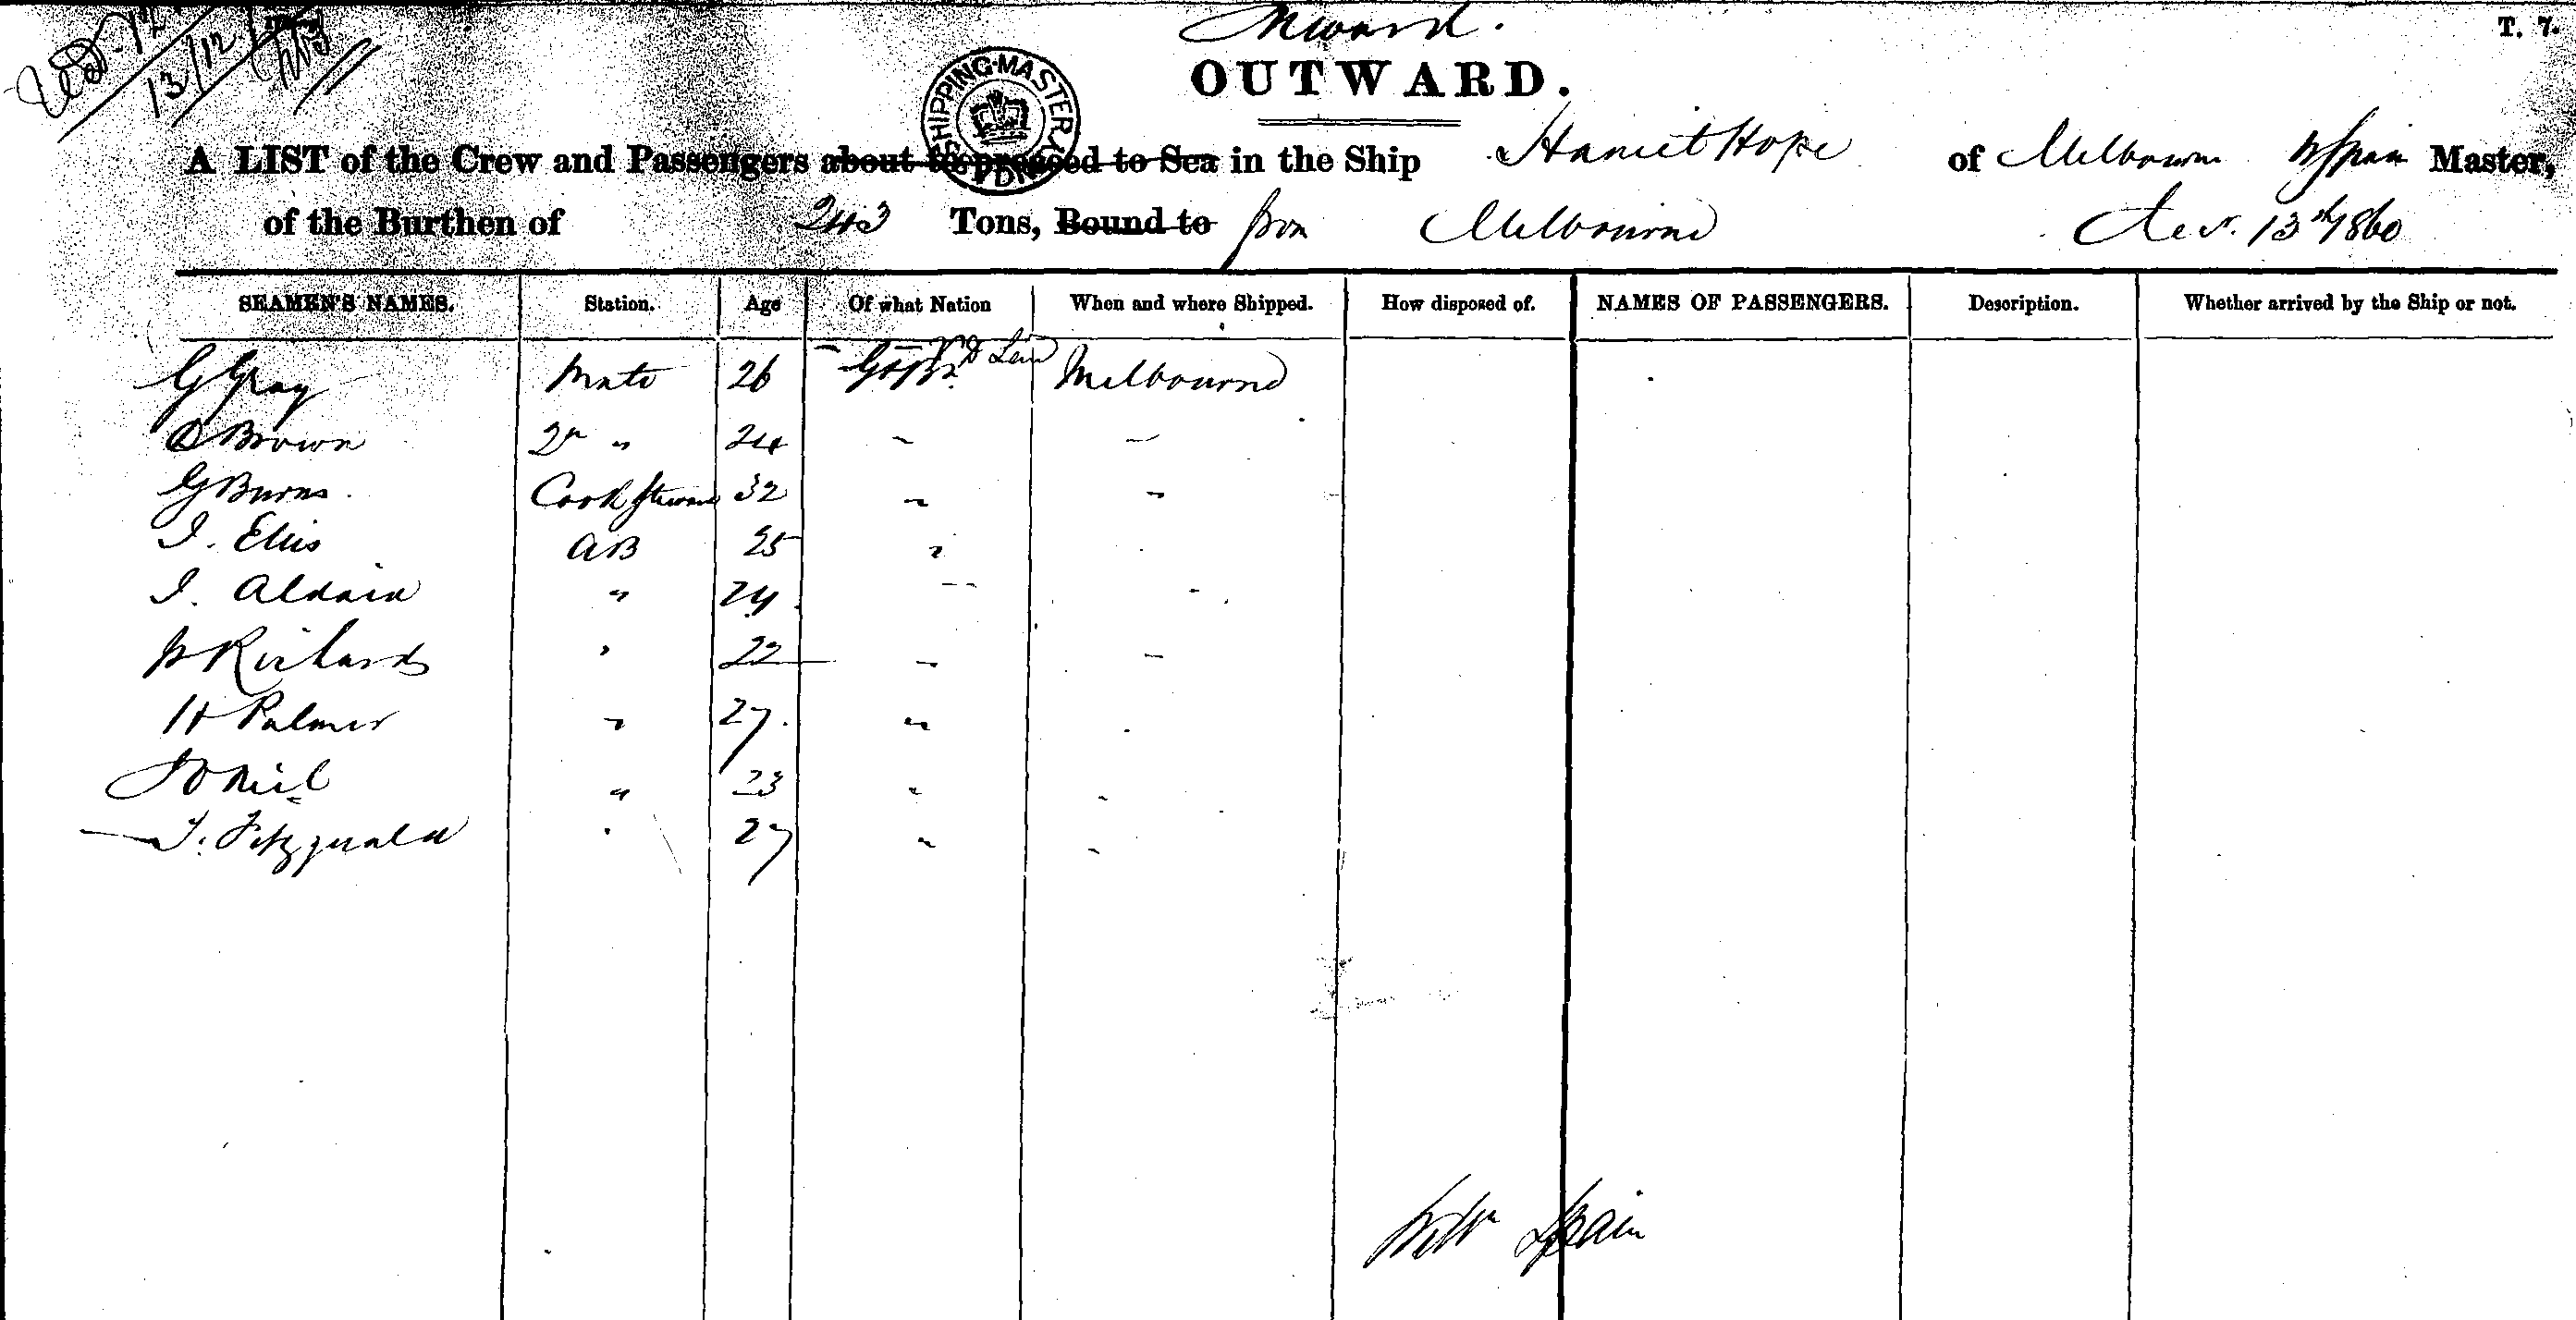 Inward.
T. 7.
OUTWARD.
SHIPPING MASTER SYDNEY
A LIST of the Crew and Passengers about to proceed to Sea in the Ship Harriet Hope of Melbourne W Spain Master,
of the Burthen of 243 Tons, Bound to from Melbourne Decr. 13th 1860
SEAMEN'S NAMES. Station. Age Of what Nation When and where Shipped. How disposed of. NAMES OF PASSENGERS. Description. Whether arrived by the Ship or not.
G Gray Mate 26 Melbourne
D Brown 2n " 24 " "
G Burns. Cook Steward 32 " "
J. Ellis AB 25 "
J. Aldain " 24 " "
W Richards " 22 " "
H Palmer " 27. "
J O Neil " 23 " "
T. Fitzgerald " 27 " "
Willm Spain